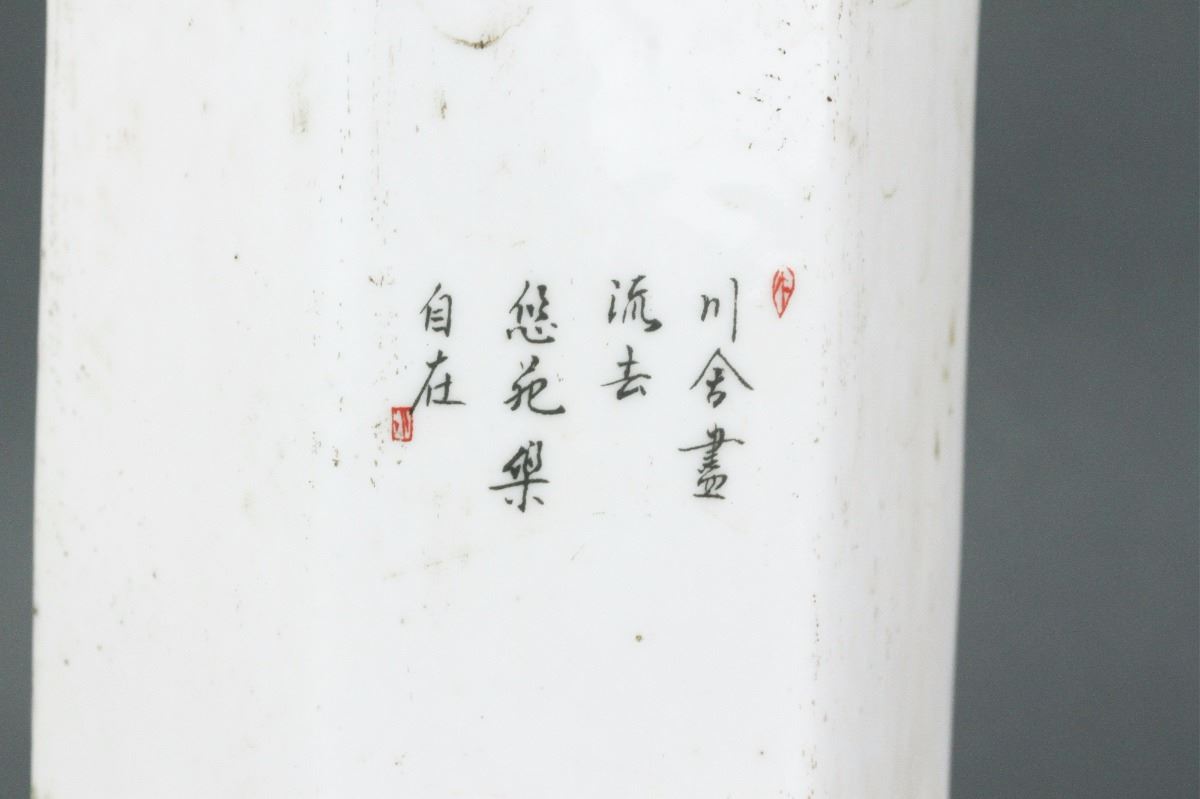 川舍盡
流去
悠苑樂
自在